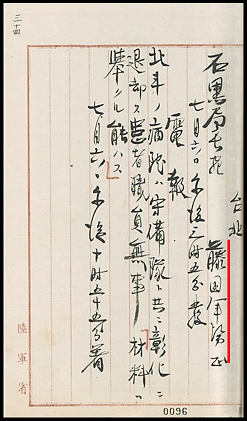 三十四
石黒局長宛
台北 藤田軍医正
七月六日午後三時五分発
電報
北斗ノ病院ハ守備隊ト共ニ彰化ニ
退却ス患者職員無事 材料ハ
挙クル能ハス
七月六日午後十時五十五分着
陸軍省
0096